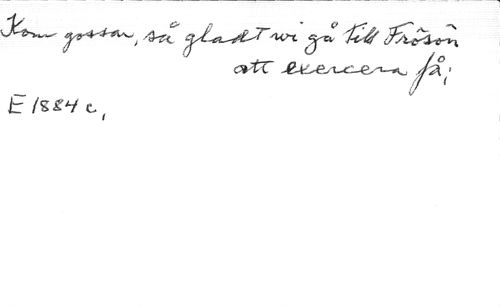 Kom gossar, så gladt wi gå till Frösön
att exercera få;
E 1884 c,